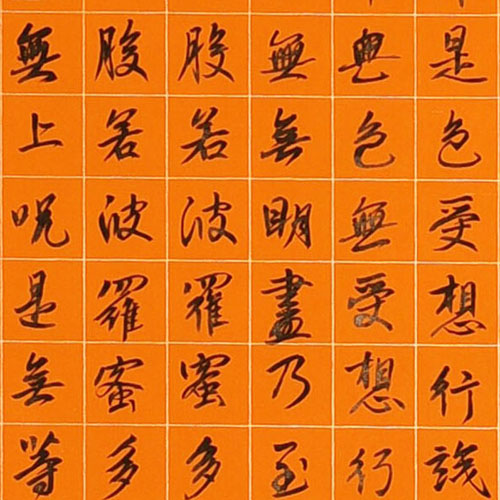 是色受想行識
無色無受想行
無無明盡乃至
般若波羅蜜多
般若波羅蜜多
無上呪是無等